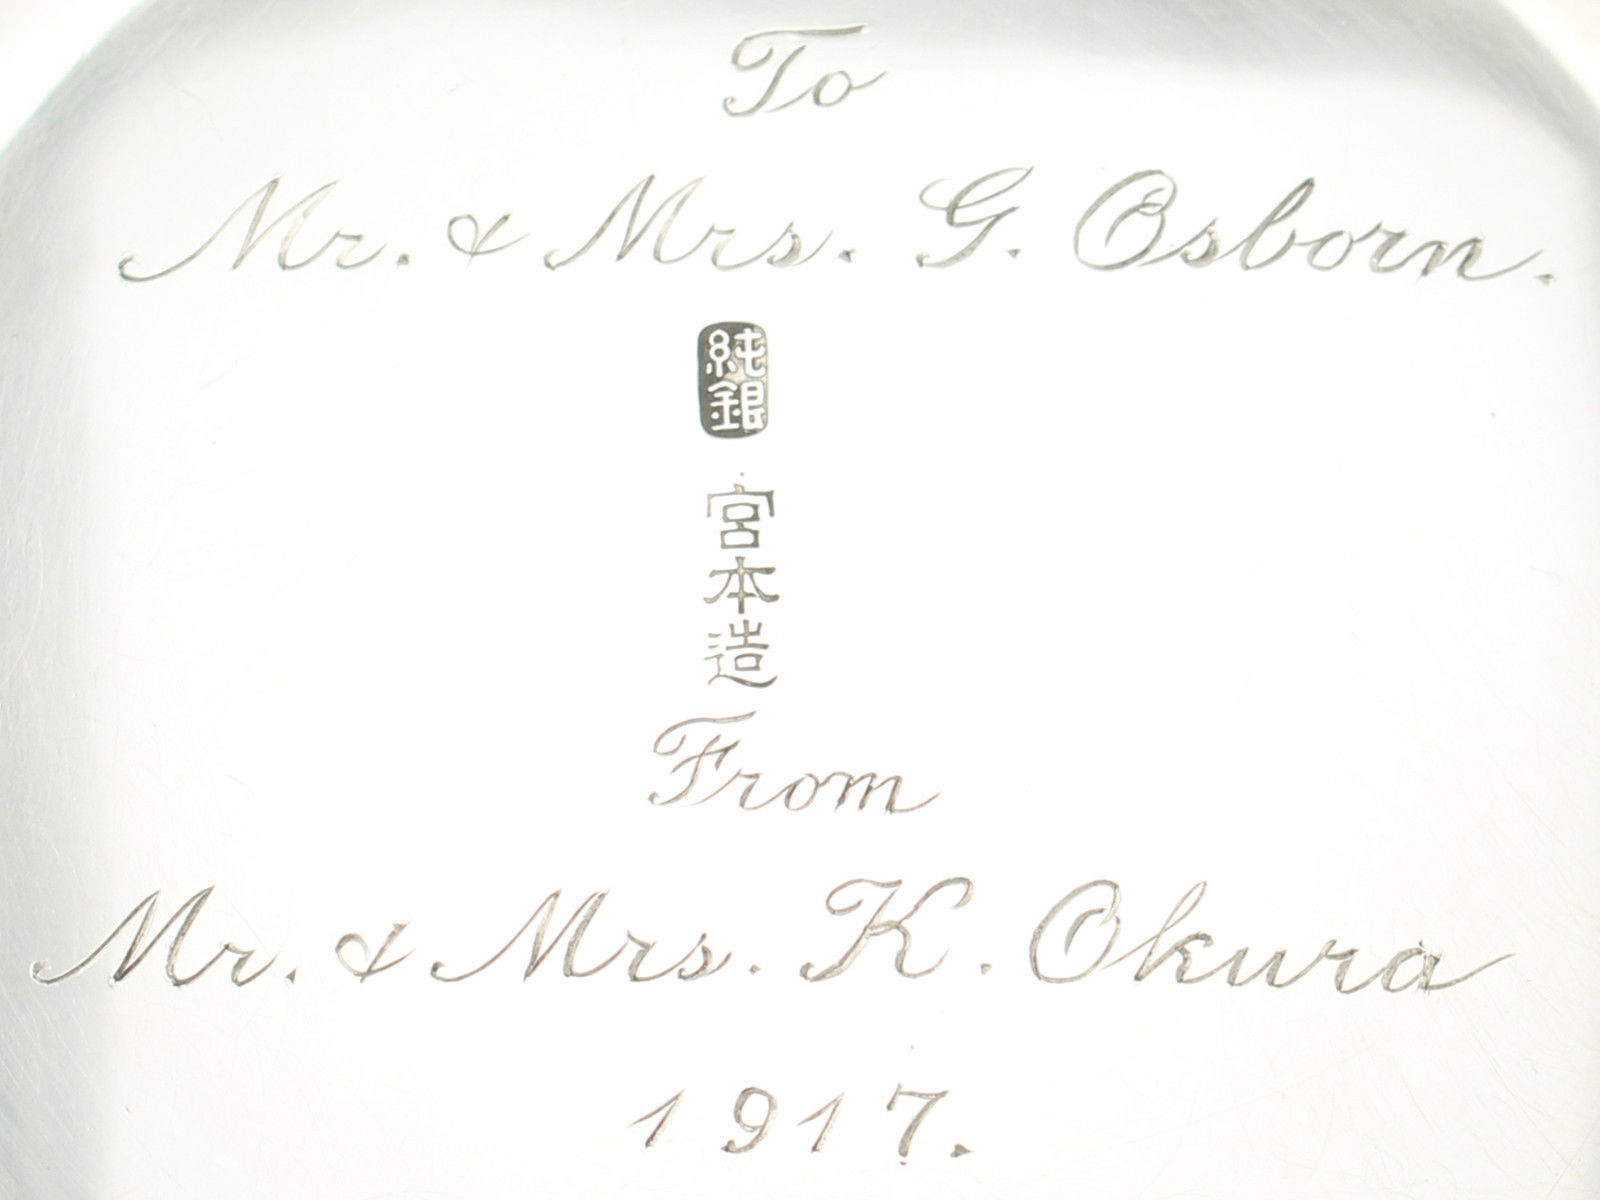 To
Mr. & Mrs. G. Osborn.
純銀
宮本造
From
Mr. & Mrs. K. Okura
1917.